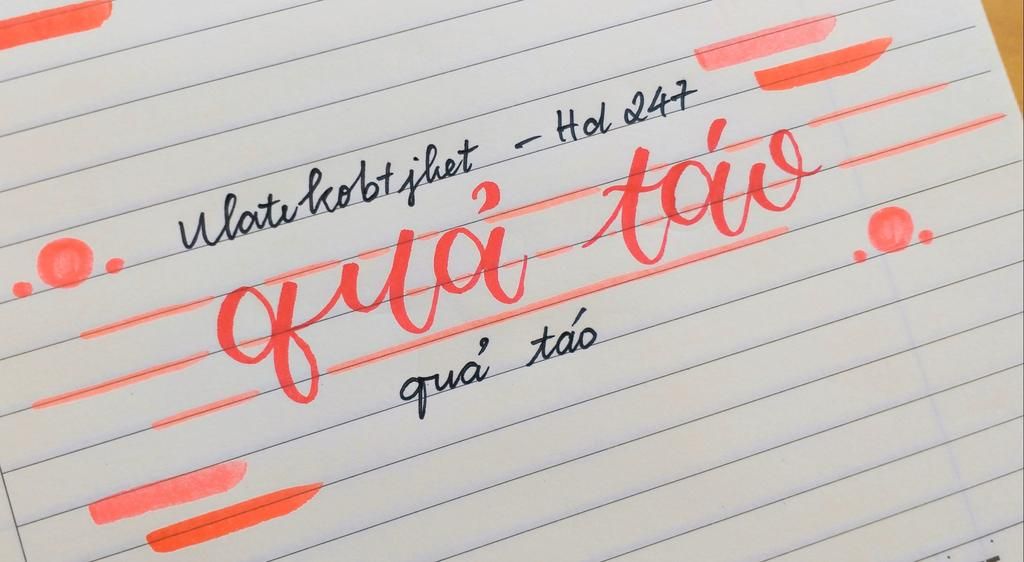 Ulatekobtjhet - Hd 247
quả táo
quả táo